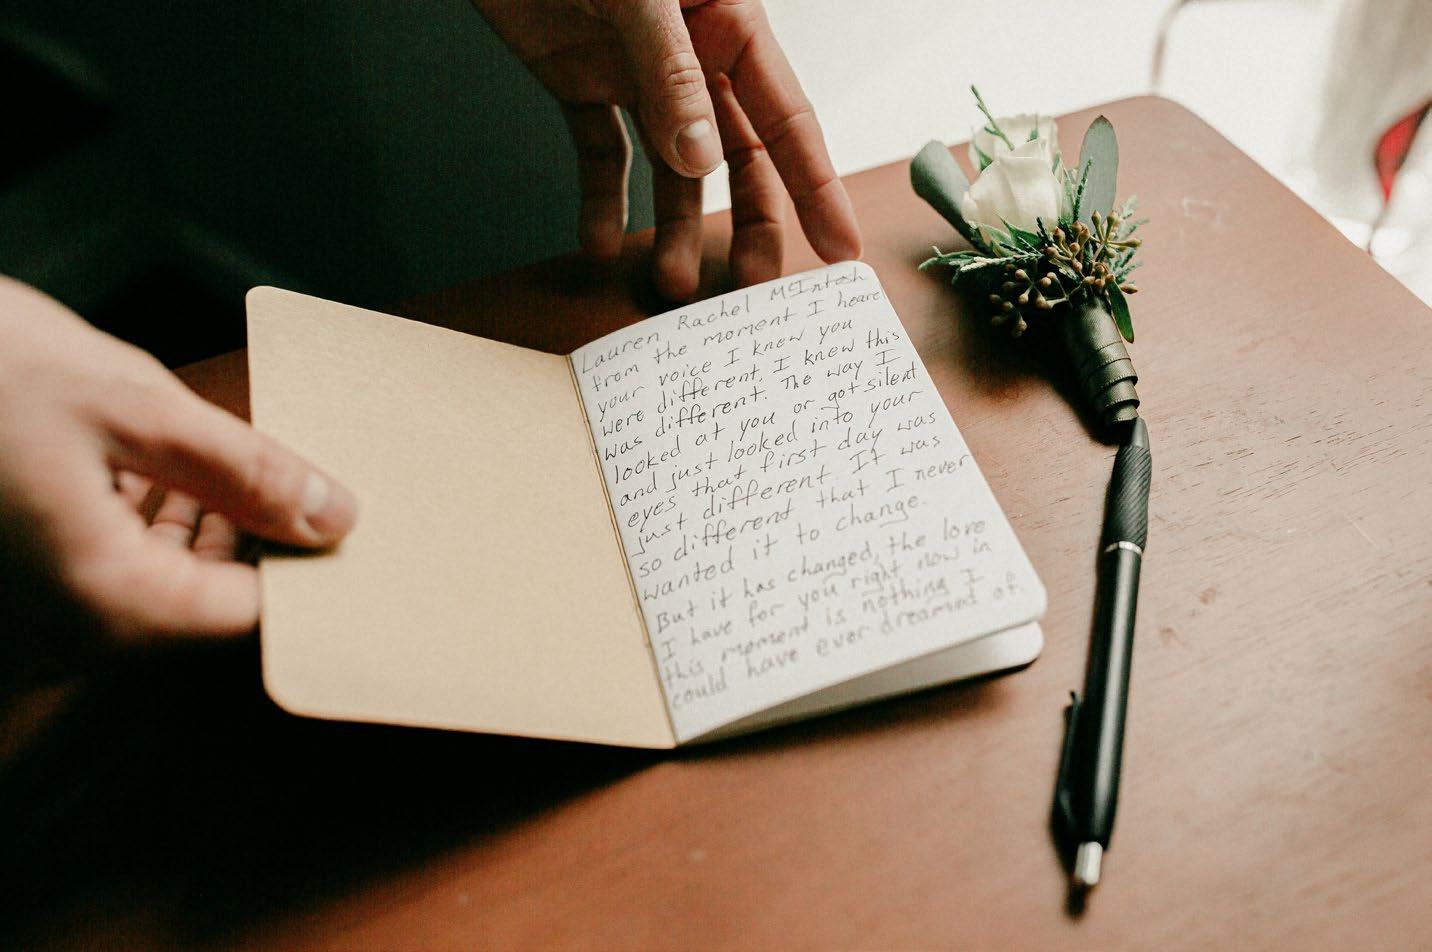 Lauren Rachel McIntosh
from the moment I heard
your voice I knew you
were different. I knew this
was different. The way I
looked at you or got silent
and just looked into your
eyes that first day was
just different. It was
so different that I never
wanted it to change.
But it has changed, the love
I have for you right now in
this moment is nothing I
could have ever dreamed of.